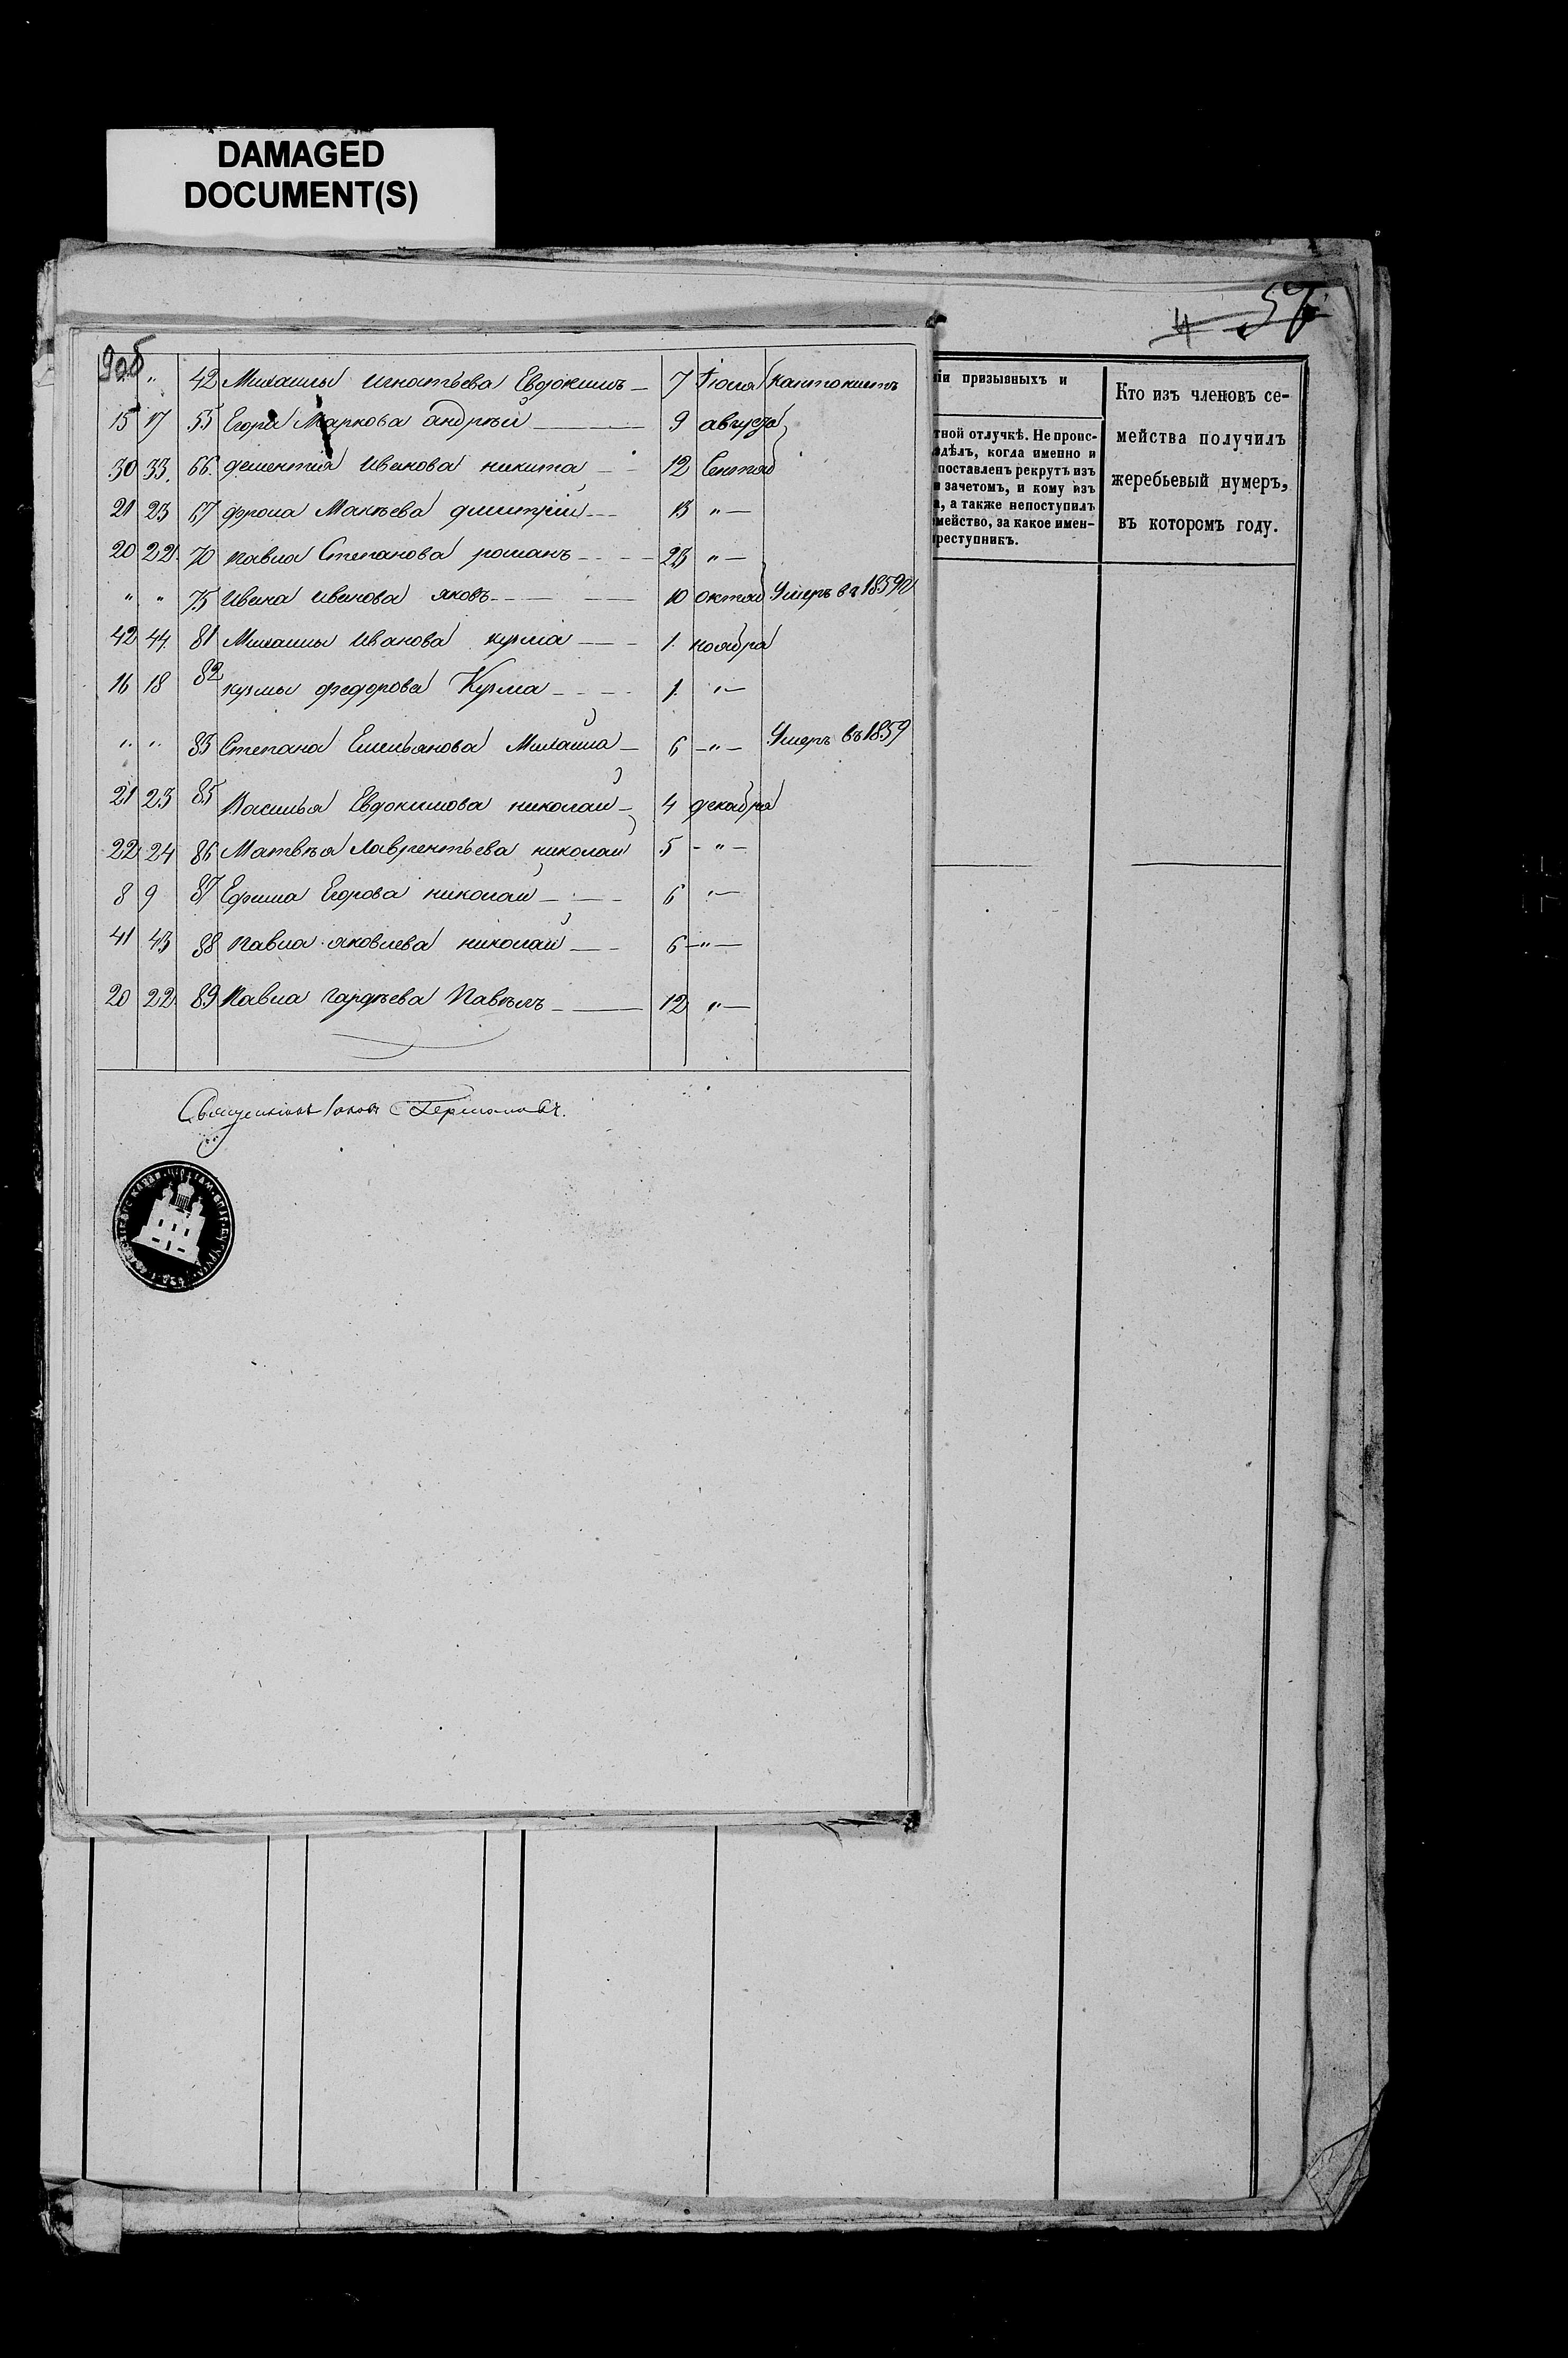 DAMAGED
DOCUMENT(S)
57
4
" 42 Михаилы Игнатьева Евдокимъ 7 Iюля кантонистъ
15 17 55 Егора Маркова андрѣй 9 августа
30 33. 66. дементия Иванова никита 12 Сентяб
21 23 67 фрола Макѣева дмитрiй 13 "
20 22 70 павла Степанова романъ 23 "
" " 75 Ивана Иванова яковъ 10 октяб Умеръ въ 1859
42 44. 81 Михаилы Иванова кузма 1. ноября
16 18 82 кузмы федорова Кузма 1. "
" " 83 Степана Емельянова Михаила 6 " Умеръ въ 1859
21 23 85 Василья Евдокимова николай 4 декабря
22 24 86 Матвѣя Лаврентьева николай 5 "
8 9 87 Ефима Егорова николай 6 "
41 43 88 павла яковлева николай 6 "
20 22 89 Павла гордѣева Павѣлъ 12 "
Священникъ Iаковъ
нiи призывныхъ и
тной отлучкѣ. Не проис-
здѣлъ, когда именно и
поставленъ рекрутъ изъ
зачетомъ, и кому изъ
а, а также непоступилъ
мейство, за какое имен-
реступник.
Кто изъ членовъ се-
мейства получилъ
жеребьевый нумеръ,
въ которомъ году.